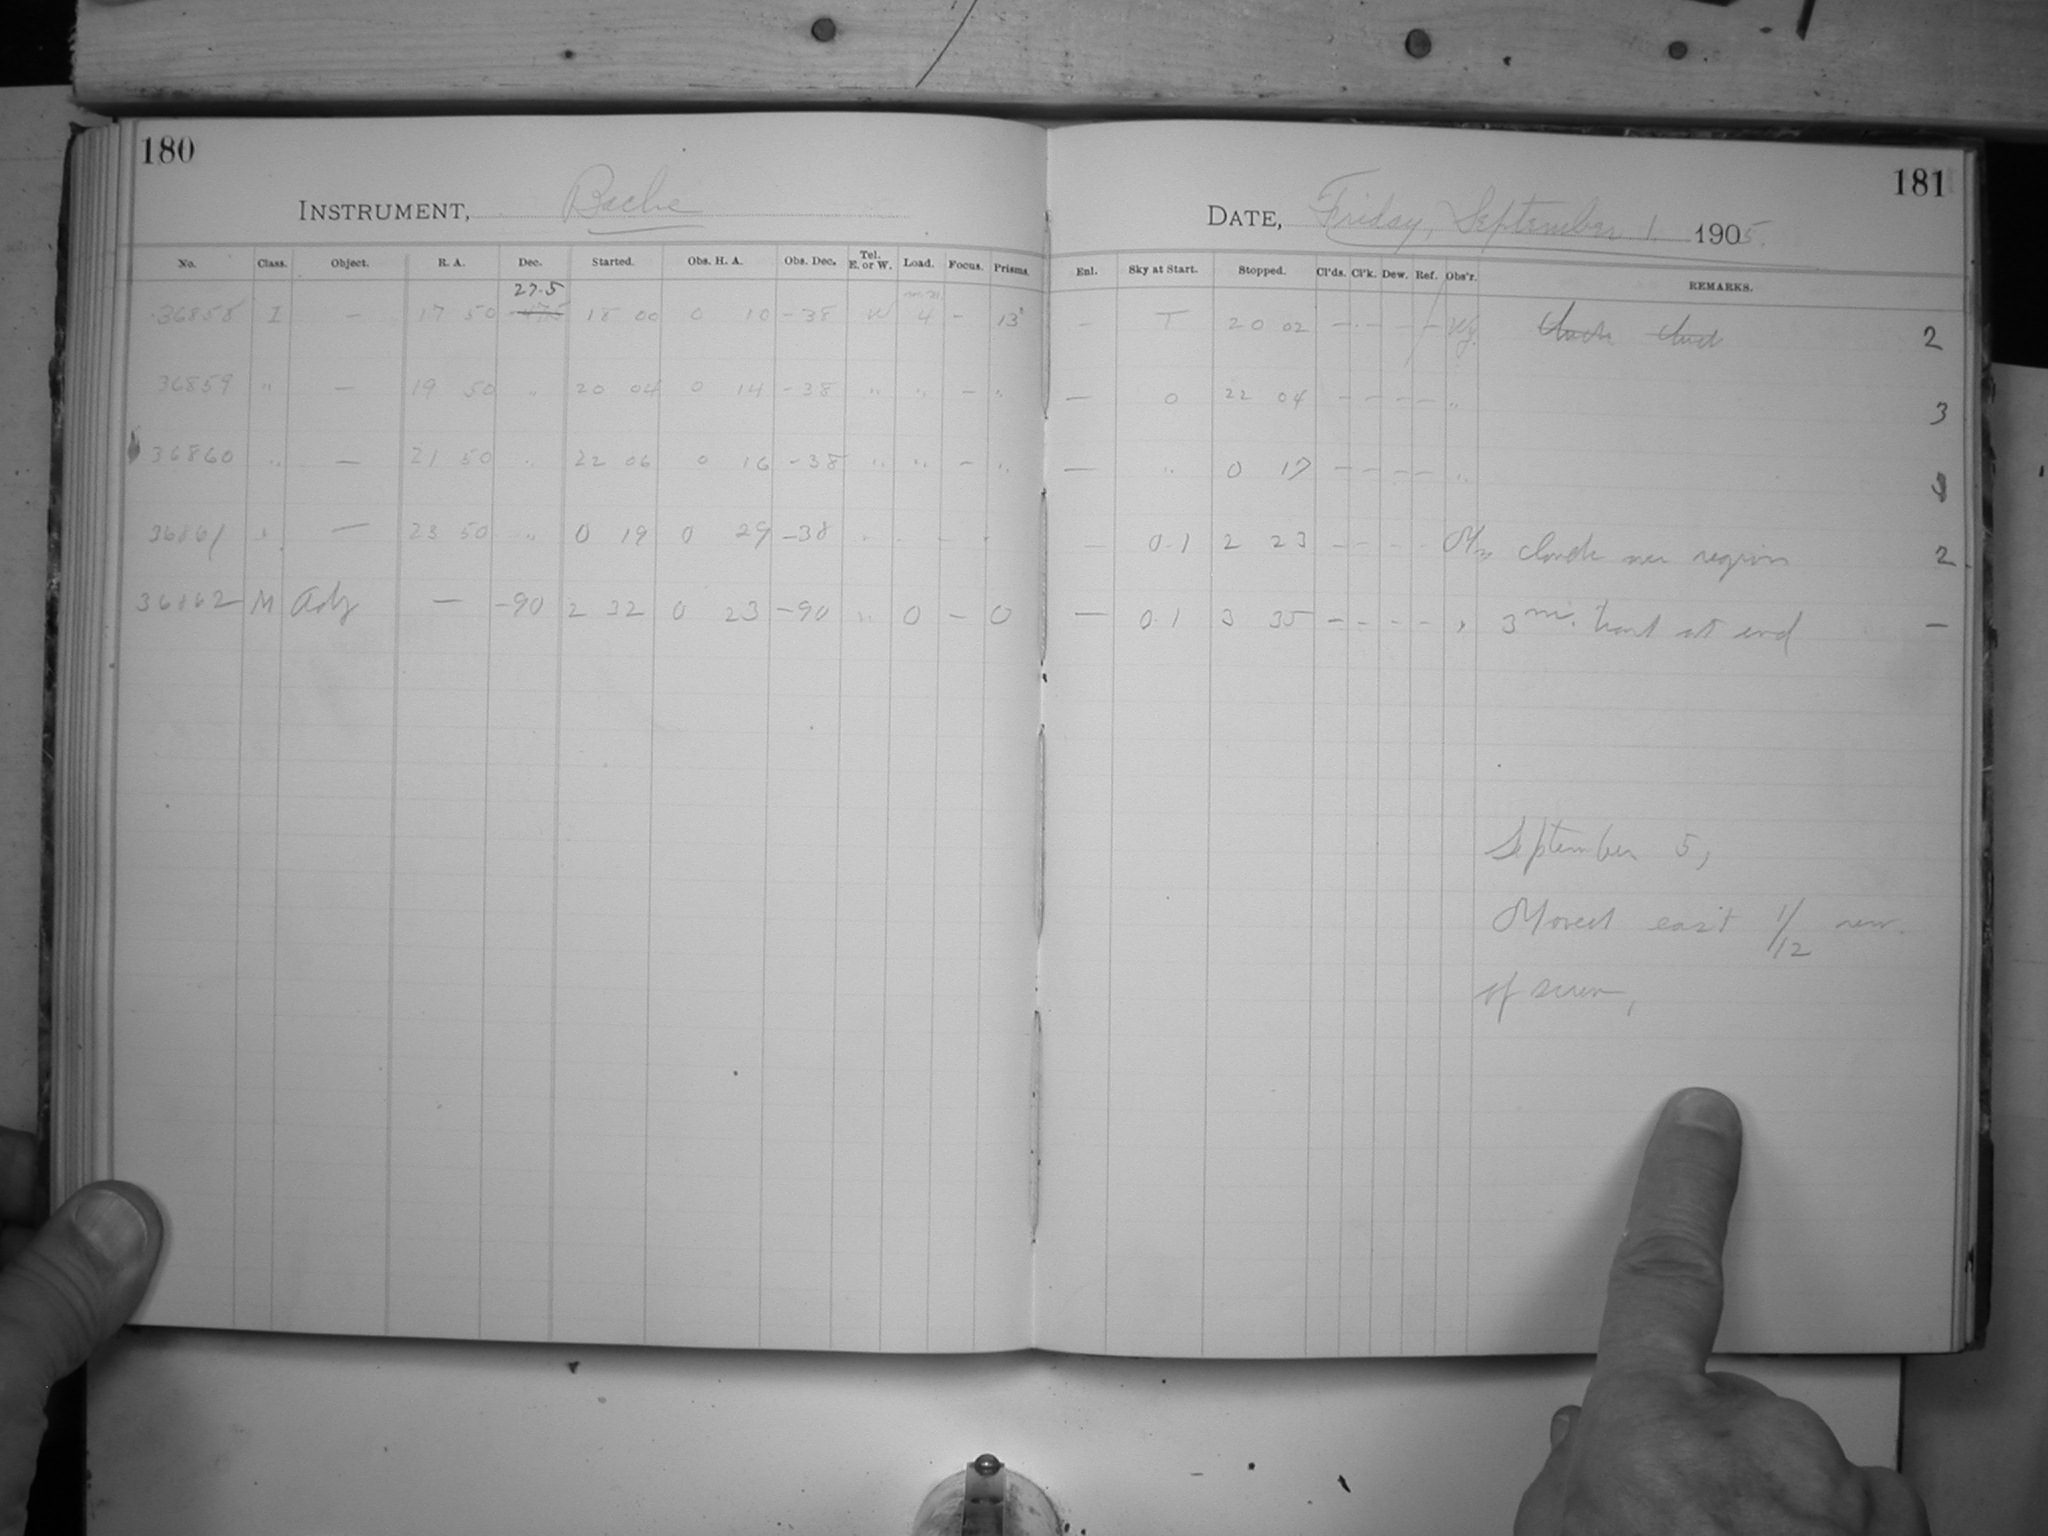 180
INSTRUMENT, Bache
No. Class. Object. R. A. Dec. Started. Obs. H. A. Obs. Dec. Tel. E. or W. Load. Focus. Prisms.
27.5
I — 17 50 18 00 0 10 -38 W 4 - 13
36859 " — 19 50 " 20 04 0 14 -38 " " - "
36860 " — 21 50 " 22 06 0 16 -38 " " - "
36861 — 23 50 " 0 19 0 29 -38
36862 M Adj — -90 2 32 0 23 -90 " 0 - 0
181
DATE, Friday, September 1, 1905.
Enl. Sky at Start. Stopped. Cl'ds. Cl'k. Dew. Ref. Obs'r. REMARKS.
- T 20 02 - - - - 2
— 0 22 04 - - - - " 3
— " 0 17 - - - - "
- 0.1 2 23 - - - - clouds over region 2
— 0.1 3 35 - - - - 3 at end -
September 5,
Moved east 1/12 rev.
of screw,